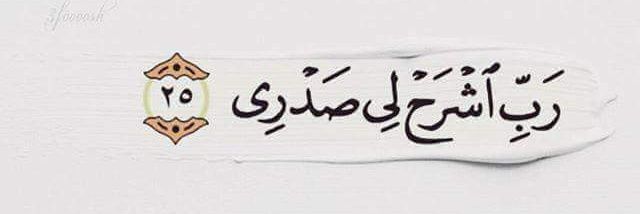 رَبِّ ٱشْرَحْ لِى صَدْرِى ٢٥